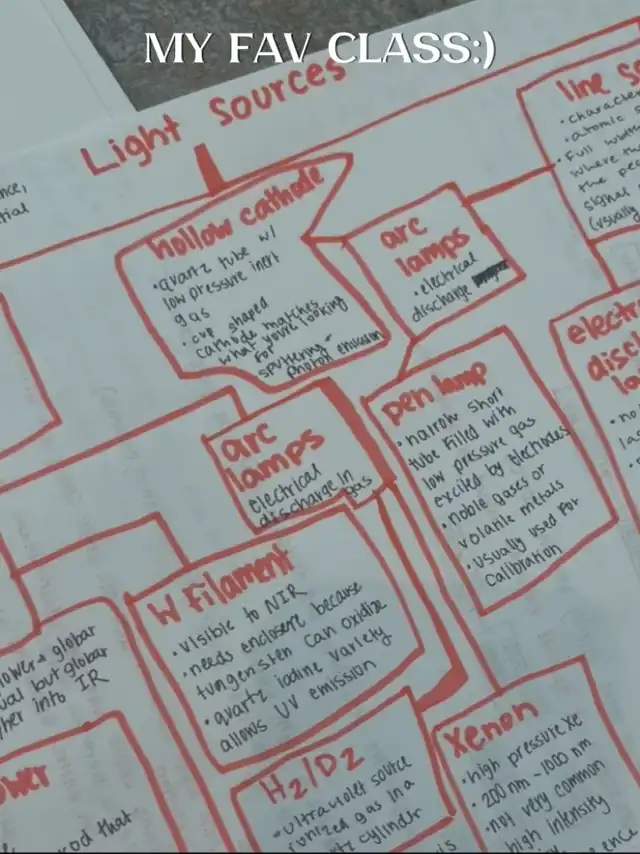 MY FAV CLASS:)
Light Sources
line
atomic
full
where the
the pe
signal
(usually
hollow cathode
• quartz tube w/
low pressure inert
gas
• cup shaped
cathode matches
what you're looking
for
sputtering -
photon emission
arc
lamps
• electrical
discharge
pen lamp
• narrow short
tube filled with
low pressure gas
excited by electrodes
• noble gases or
volatile metals
• usually used for
calibration
electr
disc
la
• no
las
arc
lamps
electrical
discharge in
gas
W Filament
• visible to NIR
• needs enclosure because
tungensten can oxidize
• quartz iodine variety
allows UV emission
ower & globar
but globar
her into IR
ower
rod that
H2/D2
• ultraviolet source
ionized gas in a
rtz cylinder
Xenon
• high pressure Xe
• 200 nm - 1000 nm
• not very common
high intensity